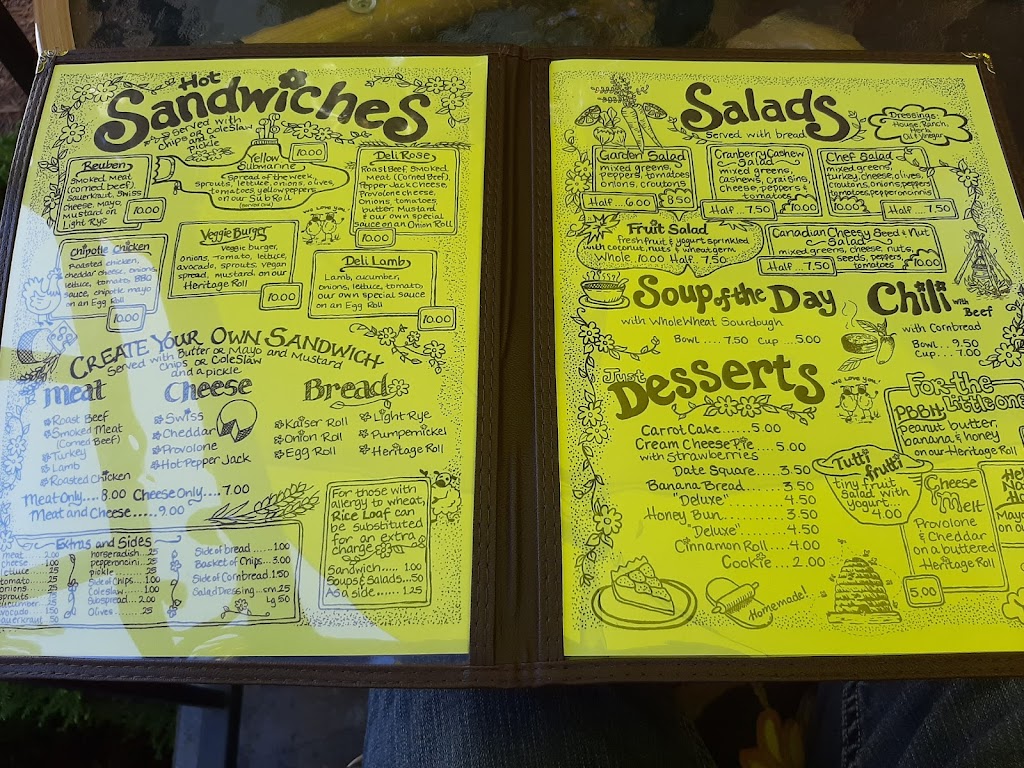 Hot
Sandwiches
Served with
Chips or Coleslaw
pickle
Reuben
Smoked Meat
(corned beef),
Sauerkraut, Swiss
Cheese, Mayo,
Mustard on
Light Rye
10.00
Yellow
Submarine
10.00
Spread of the week,
sprouts, lettuce, onions, olives,
tomatoes, yellow peppers
on our Sub Roll
Deli Rose
Roast Beef, Smoked
Meat (Corned Beef),
Pepper-Jack Cheese,
Provolone Cheese,
Onions, tomatoes
Butter Mustard
& our own special
Sauce on an Onion Roll
10.00
We love you
Chipotle Chicken
Roasted chicken,
cheddar cheese, onions,
lettuce, tomato, BBQ
sauce, chipotle mayo
on an Egg Roll
10.00
Veggie Burger
Veggie burger,
onions, tomato, lettuce,
avocado, sprouts, vegan
spread, mustard, on our
Heritage Roll
10.00
Deli Lamb
Lamb, cucumber,
onions, lettuce, tomato,
our own special sauce
on an Egg Roll
10.00
Create Your Own Sandwich
Served with Butter or Mayo and Mustard
chips or Coleslaw
and a pickle
Meat
Roast Beef
Smoked Meat
(Corned Beef)
Turkey
Lamb
Roasted Chicken
Cheese
Swiss
Cheddar
Provolone
Hot Pepper Jack
Bread
Kaiser Roll
Onion Roll
Egg Roll
Light Rye
Pumpernickel
Heritage Roll
Meat Only....8.00 Cheese Only....7.00
Meat and Cheese.....9.00
Extras and Sides
meat 2.00
cheese 1.00
lettuce .25
tomato .25
onions .25
sprouts
cucumber .25
avocado 1.50
sauerkraut .50
horseradish...25
pepperoncini..25
pickle .25
Side of Chips... 1.00
Coleslaw.... 1.00
Subspread... 2.00
Olives .25
Side of bread......1.00
Basket of Chips...3.00
Side of Cornbread.1.50
Salad Dressing...sm .25
Lg .50
For those with
allergy to wheat,
Rice Loaf can
be substituted
for an extra
charge
Sandwich......1.00
Soups & Salads...50
As a side......1.25
Salads
Served with bread
Dressings:
House, Ranch,
Herb,
Oil & Vinegar
Garden Salad
mixed greens,
peppers, tomatoes
onions, croutons
Half...6.00 8.50
Cranberry Cashew
Salad
mixed greens,
Cashews, Craisins,
cheese, peppers &
tomatoes
Half...7.50 10.00
Chef Salad
mixed greens,
turkey, cheese, olives,
croutons, onions, peppers
tomatoes, pepperoncinis
10.00 Half...7.50
Fruit Salad
fresh fruit & yogurt sprinkled
with coconut, nuts & wheat germ
Whole. 10.00 Half. 7.50
Canadian Cheesy Seed & Nut
Salad
mixed greens, cheese, nuts,
seeds, peppers,
tomatoes
Half...7.50 10.00
Soup of the Day
with Whole Wheat Sourdough
Bowl .... 7.50 Cup ...5.00
Chili with
Beef
with Cornbread
Bowl...9.50
Cup....7.00
Just
Desserts
Carrot Cake......5.00
Cream Cheese Pie
with Strawberries 5.00
Date Square.....3.50
Banana Bread......3.50
"Deluxe"......4.50
Honey Bun.......3.50
"Deluxe".....4.50
Cinnamon Roll....4.00
Cookie...2.00
Homemade!
We love you!
Tutti
frutti
tiny fruit
salad with
yogurt...
4.00
For the
little one
PBBH
peanut butter,
banana & honey
on our Heritage Roll
Cheese
Melt
Provolone
& Cheddar
on a buttered
Heritage Roll
5.00